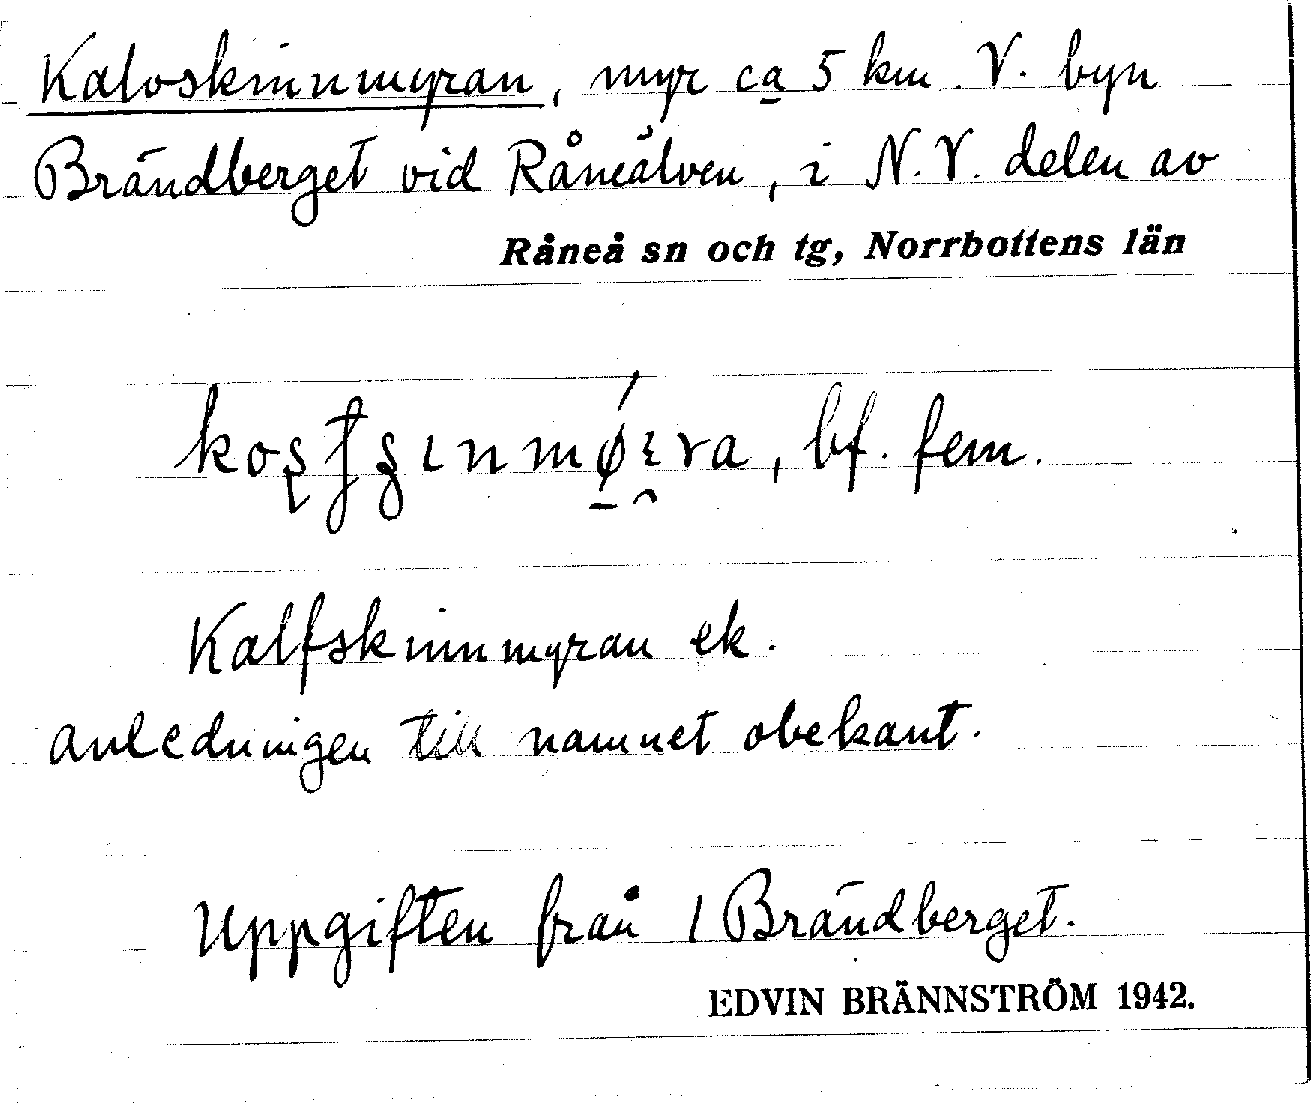 Kalvskinnmyran, myr ca 5 km. V. byn
Brändberget vid Råneälven, i N.V. delen av
Råneå sn och tg, Norrbottens län
bf. fem.
Kalfskinnmyran ek.
anledningen till namnet obekant.
Uppgiften från 1 Brändberget.
EDVIN BRÄNNSTRÖM 1942.